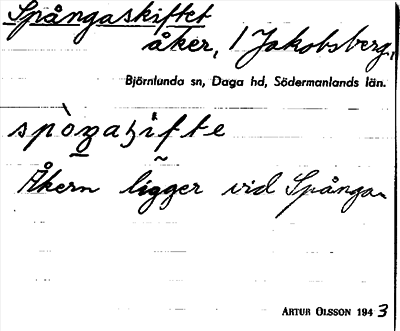 Spångaskiftet
åker, / Jakobsberg,
Björnlunda sn, Daga hd, Södermanlands län.
Åkern ligger vid Spånga.
ARTUR OLSSON 1943